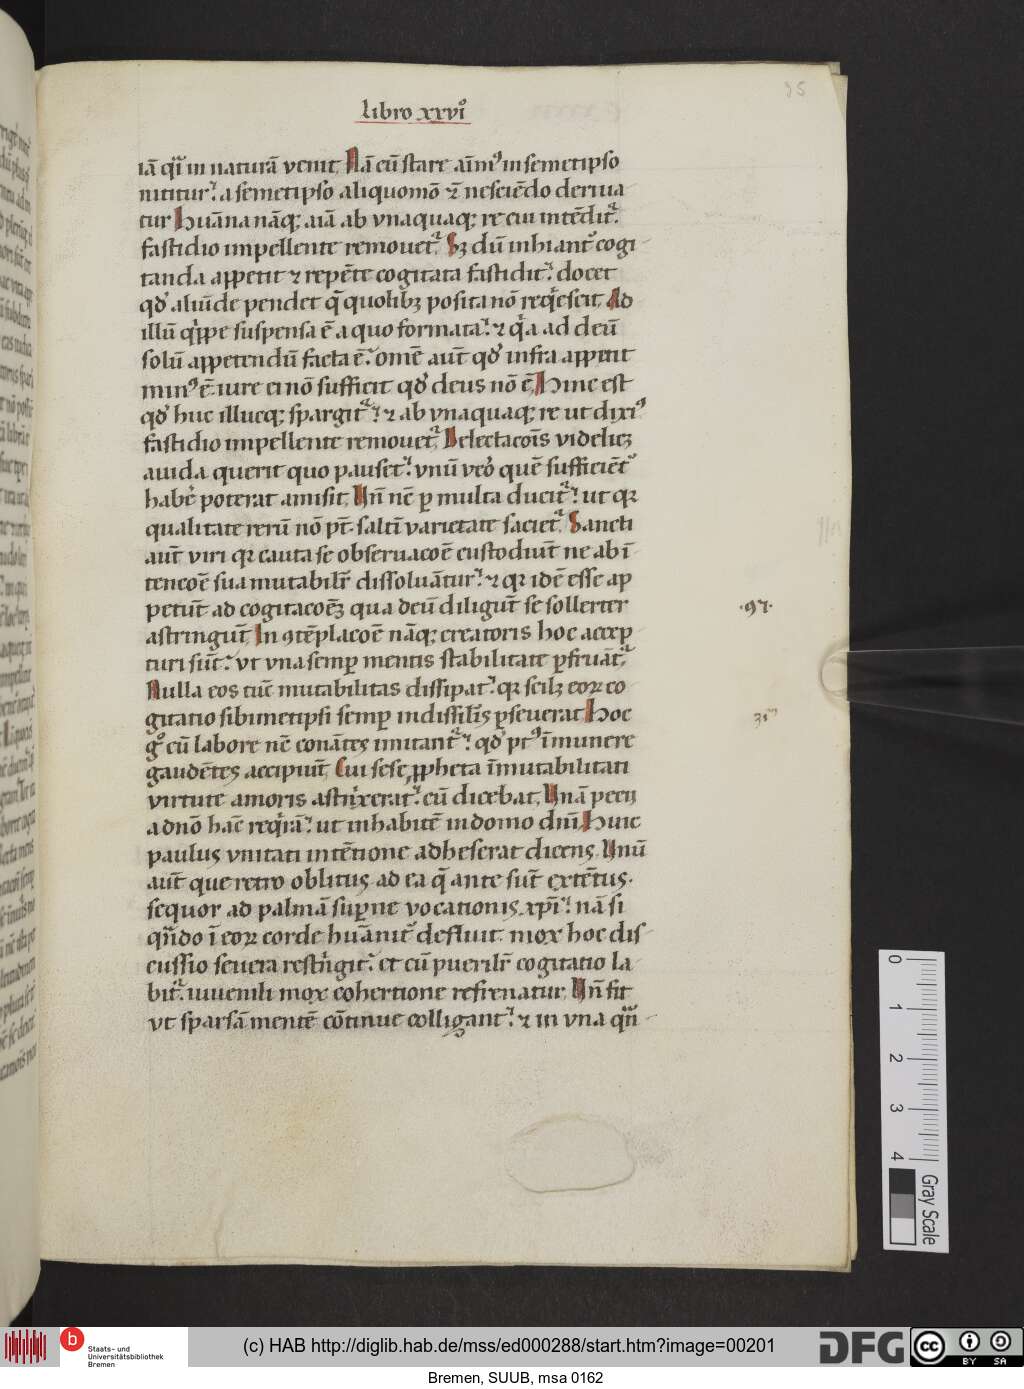 35
libro xxvi⁹
iā qͥͣ in naturā venit. Nā cū stare aīm⁹ in semetipso
nititur. a semetipso aliquomō ⁊̄ nesciēdo deriua
tur Huāna nāq; aīa ab vnaquaq; re cui intēdit᷑.
fastidio impellente remouet᷑. Sꝫ dū inhiant᷑ cogi
tanda appetit ⁊ repēte cogitata fastidit. docet
qđ aliūde pendet q̄ quolibꝫ posita nō reqͥescit. Ad
illū qͥppe suspensa ē a quo formata. ⁊ qͥa ad deū
solū appetendū facta ē. omē aut̄ qđ infra appetit
min⁹ ē. iure ei nō sufficit qđ deus nō ē. Hinc est
qđ huc illucq; spargit᷑. ⁊ ab vnaquaq; re ut dixi⁹
fastidio impellente remouet᷑. Delectacoīs videlicꝫ
auida querit quo pauset. vnū vēo quē sufficient᷑
habē poterat amisit. Vn̄ nē ꝑ multa ducit᷑. ut qꝛ
qualitate rerū nō pt̄. saltī varietate saciet᷑. Sancti
aut̄ viri qꝛ cauta se obseruacoē custodiut̄ ne ab ī
tencoē sua mutabilr̄ dissoluātur. ⁊ qꝛ idē esse ap
petut̄ ad cogitacoēꝫ qua deū diligut̄ se sollerter
·97·
astringut̄. In ꝯtēplacoē nāq; creatoris hoc accep
turi sut̄. vt vna semꝑ mentis stabilitate ꝑfruāt᷑.
Nulla eos tūc mutabilitas dissipat. qꝛ scilꝫ eoꝝ co
gitatio sibimetipsi semꝑ indissilis ꝑseuerat Hoc
g̊ cū labore nē conātes imitant᷑. qđ pt⁹ ī munere
gaudētes accipiut̄. Cui sese ꝓpheta īmutabilitati
virtute amoris astrīxerat. cū dicebat. Vnā pecij
a dnō hāc reqͥrā. ut inhabitē in domo dn̄i. Huic
paulus vnitati intētione adheserat dicens. Vnū
aut̄ que retro oblitus ad ea q̄ ante sut̄ extētus.
sequor ad palmā suꝑne vocationis xp̄i. nā si
qn̄do ī eoꝝ corde huānit᷑ defluit. mox hoc dis
cussio seuera restrīgit. et cū puerilr̄ cogitatio la
bit᷑. iuuenili mox cohertione refrenatur. Vn̄ fit
vt sparsā mentē cōtinue colligant. ⁊ in vna qn̄
0 1 2 3 4
Gray Scale
b
Staats- und
Universitätsbibliothek
Bremen
(c) HAB http://diglib.hab.de/mss/ed000288/start.htm?image=00201
DFG
cc BY SA
Bremen, SUUB, msa 0162